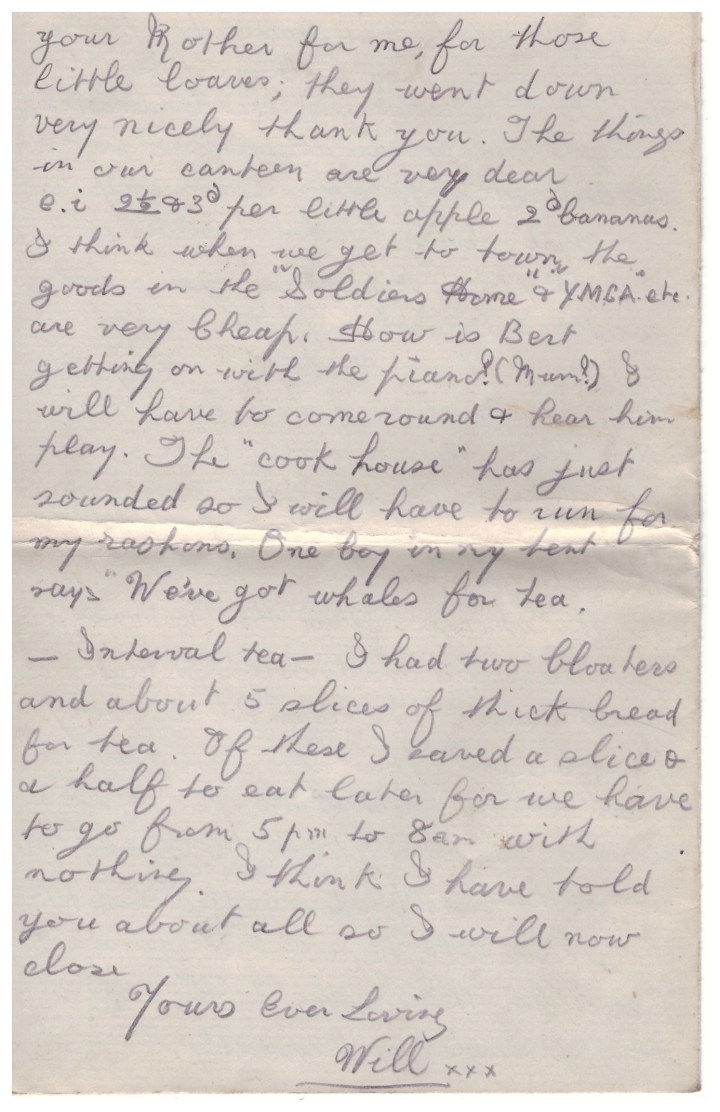 your Mother for me, for those
little loaves; they went down
very nicely thank you. The things
in our canteen are very dear
e.i 2½ & 3d per little apple 2d bananas.
I think when we get to town, the
goods in the "Soldiers Home" & "Y.M.C.A." etc.
are very Cheap. How is Bert
getting on with the piano? (Mum?) I
will have to come round & hear him
play. The "cook house" has just
sounded so I will have to run for
my rashons. One boy in my tent
says "We've got whales for tea.
— Interval tea — I had two bloaters
and about 5 slices of thick bread
for tea. Of these I saved a slice &
a half to eat later for we have
to go from 5 pm to 8 am with
nothing. I think I have told
you about all so I will now
close
Yours Ever Loving
Will xxx